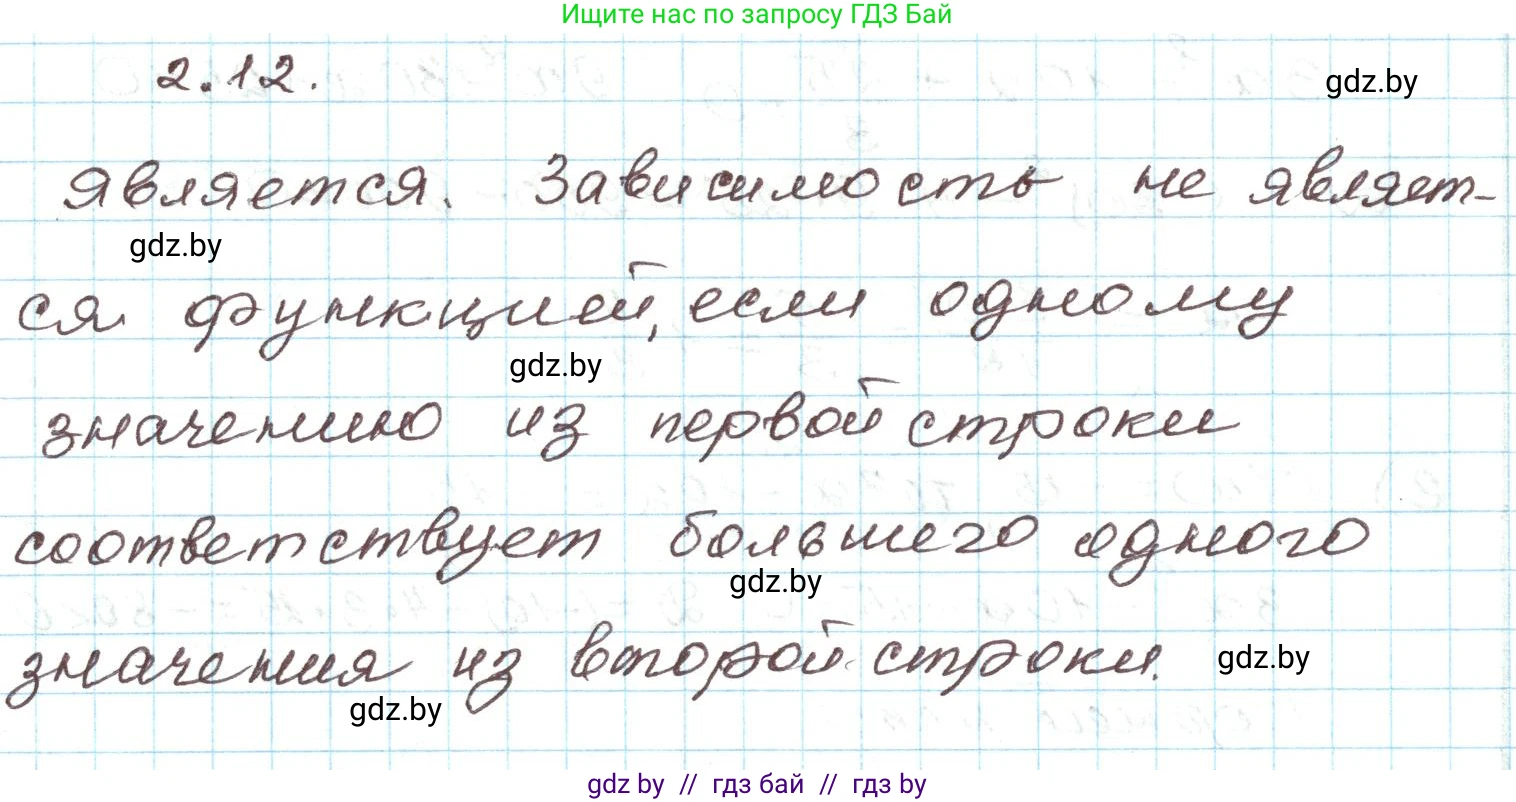 Ищите нас по запросу ГДЗ Бай
2.12.
gdz.by
Является. Зависимость не являет-
gdz.by
ся функцией, если одному
gdz.by
значению из первой строки
соответствует большего одного
gdz.by
значения из второй строки.
gdz.by
gdz.by
gdz by // гдз бай // гдз by